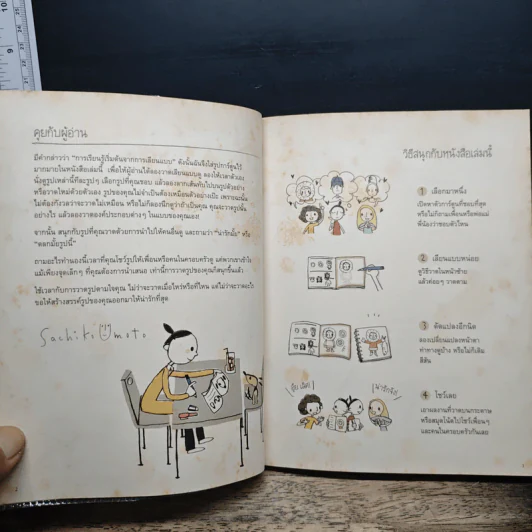 คุยกับผู้อ่าน
มีคำกล่าวว่า "การเรียนรู้เริ่มต้นจากการเลียนแบบ" ดังนั้นฉันจึงใส่รูปการ์ตูนไว้
มากมายในหนังสือเล่มนี้ เพื่อให้ผู้อ่านได้ลองวาดเลียนแบบดู ลองให้เวลาตัวเอง
นั่งดูรูปเหล่านี้ทีละรูปๆ เลือกรูปที่คุณชอบ แล้วลองลากเส้นทับไปบนรูปตัวอย่าง
หรือวาดใหม่ด้วยตัวเอง รูปของคุณไม่จำเป็นต้องเหมือนตัวอย่างเป๊ะ เพราะฉะนั้น
ไม่ต้องกังวลว่าจะวาดไม่เหมือน หรือไม่ก็ลองนึกดูว่าถ้าเป็นคุณ คุณจะวาดรูปนั้น
อย่างไร แล้วลองวาดองค์ประกอบต่างๆ ในแบบของคุณเอง!
จากนั้น สนุกกับรูปที่คุณวาดด้วยการนำไปให้คนอื่นดู และถามว่า "น่ารักมั้ย" หรือ
"ตลกมั้ยรูปนี้"
ถามอะไรทำนองนี้เวลาที่คุณโชว์รูปให้เพื่อนหรือคนในครอบครัวดู แค่พวกเขาเข้าใจ
แม้เพียงจุดเล็กๆ ที่คุณต้องการนำเสนอ เท่านี้การวาดรูปของคุณก็สนุกขึ้นแล้ว
ใช้เวลากับการวาดรูปตามใจคุณ ไม่ว่าจะวาดเมื่อไหร่หรือที่ไหน แต่ไม่ว่าจะอะไร
ขอให้สร้างสรรค์รูปของคุณออกมาให้น่ารักที่สุด
Sachiko Umoto
วิธีสนุกกับหนังสือเล่มนี้
1 เลือกมาหนึ่ง
เปิดหาตัวการ์ตูนที่ชอบที่สุด
หรือไม่ก็ถามเพื่อนหรือพ่อแม่
พี่น้องว่าชอบตัวไหน
2 เลียนแบบหน่อย
ดูวิธีวาดในหน้าซ้าย
แล้วค่อยๆ วาดตาม
3 ดัดแปลงอีกนิด
ลองเปลี่ยนแปลงหน้าตา
ท่าทางดูบ้าง หรือไม่ก็เติม
สีสัน
4 โชว์เลย
เอาผลงานที่วาดบนกระดาษ
หรือสมุดโน้ตไปโชว์เพื่อนๆ
และคนในครอบครัวกันเลย